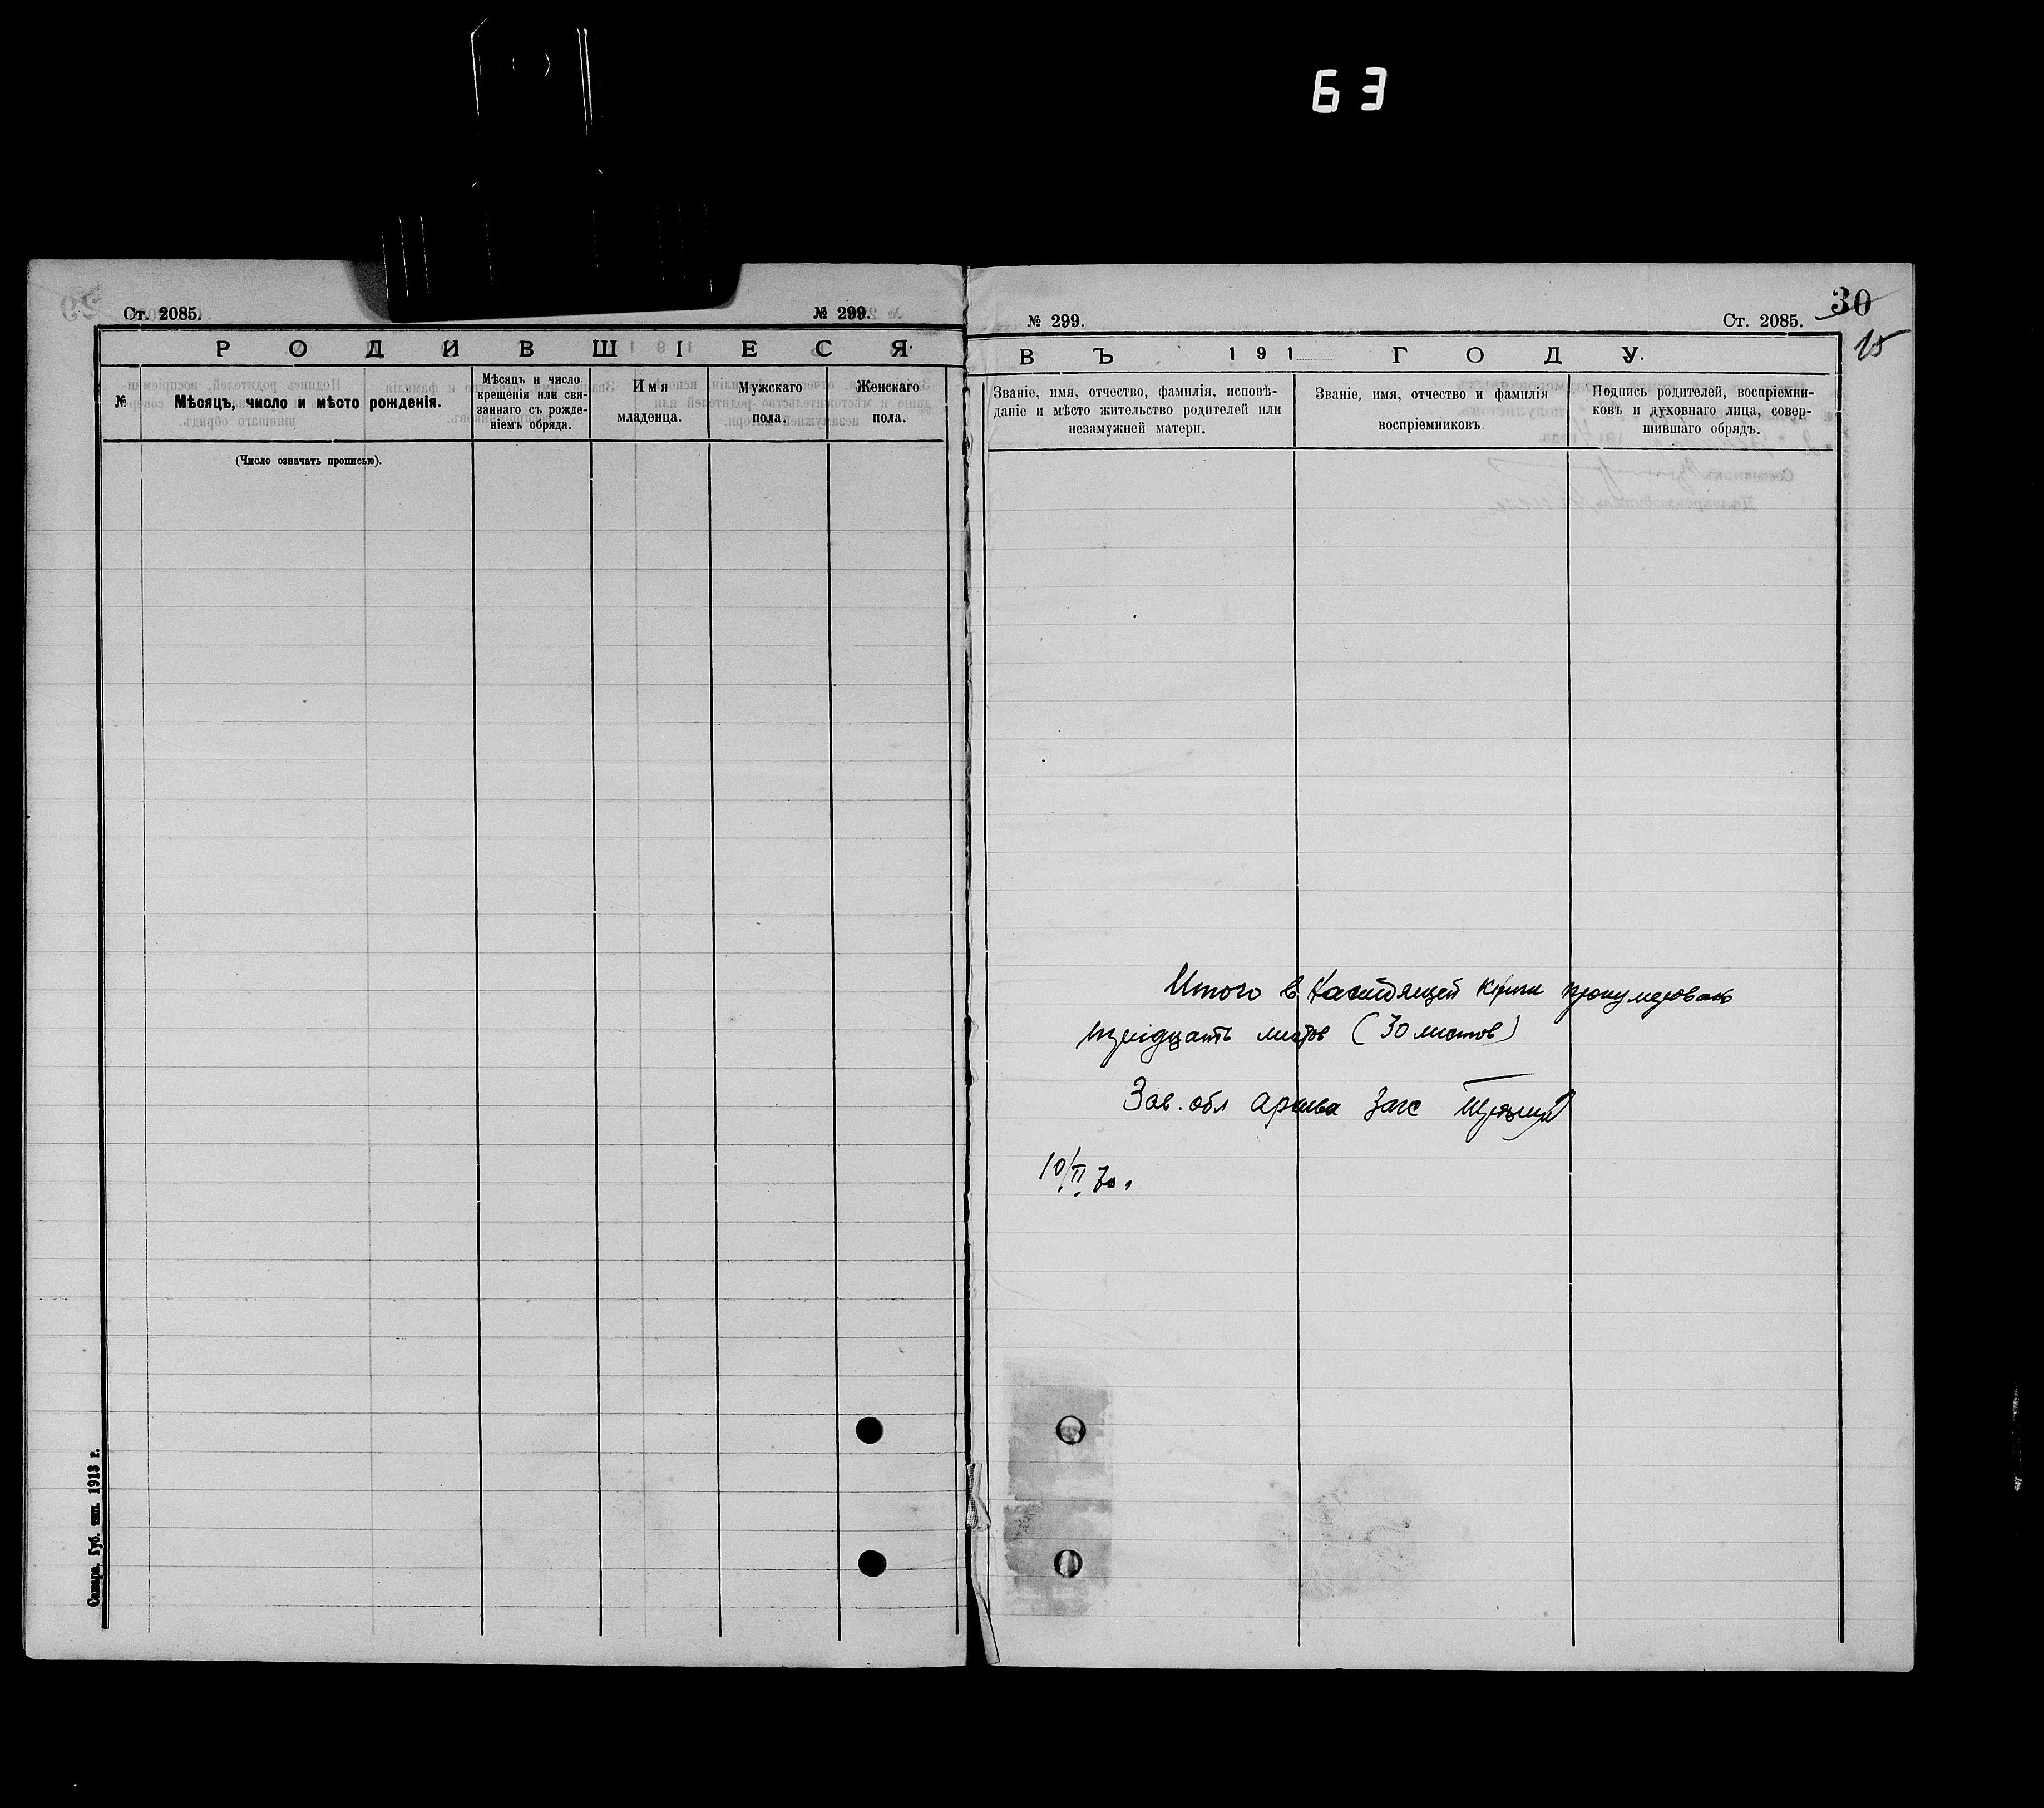 63
Ст. 2085.
№ 299.
РОДИВШІЕСЯ
№
Мѣсяцъ, число и мѣсто рожденія.
Мѣсяцъ и число
крещенія или свя-
заннаго съ рожде-
ніемъ обряда.
Имя
младенца.
Мужскаго
пола.
Женскаго
пола.
(Число означать прописью).
Самара. Губ. тип. 1913 г.
30
15
№ 299.
Ст. 2085.
ВЪ 191 ГОДУ.
Званіе, имя, отчество, фамилія, исповѣ-
даніе и мѣсто жительство родителей или
незамужней матери.
Званіе, имя, отчество и фамилія
воспріемниковъ
Подпись родителей, воспріемни-
ковъ и духовнаго лица, совер-
шившаго обрядъ.
Итого в настоящей книги пронумеровано
тридцать листов (30 листов)
Зав. обл архива Загс
10/II 70.